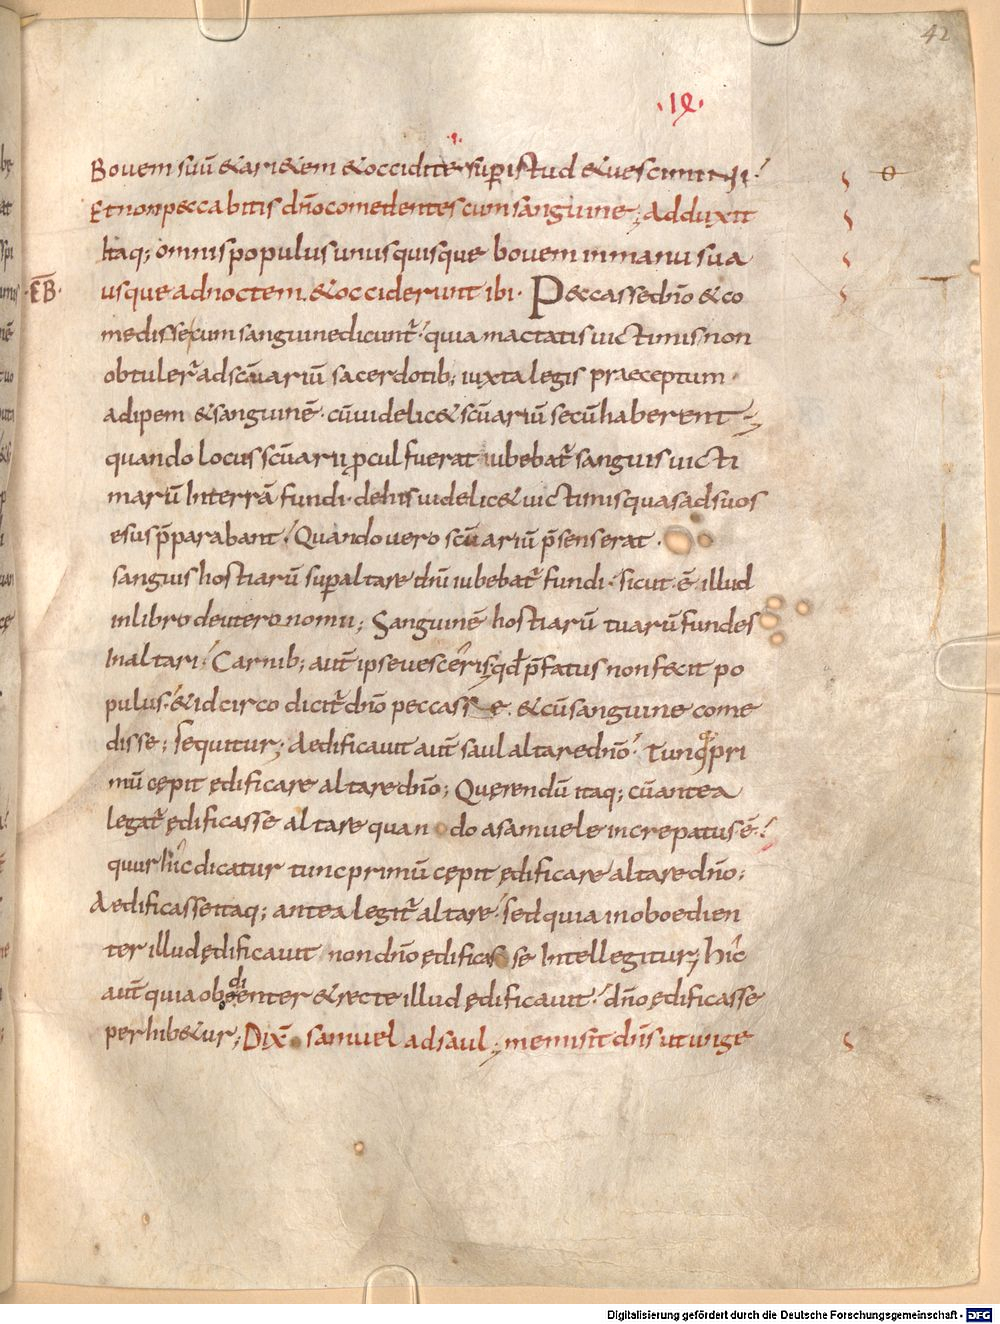 42
·IX·
Bouem suū & ari&em & occidite sup istud & uescimini
Et non peccabitis dn̄o comedentes cum sanguine; Adduxit
Itaq; omnis populus unusquisque bouem in manu sua
ĒB· usque ad noctem. & occiderunt ibi· Peccasse dn̄o & co
medisse cum sanguine dicunt̄· quia mactatis uictimis non
obtuler̄ ad sc̄uariū sacerdotib; iuxta legis praeceptum·
adipem & sanguinē· cū uidelic& sc̄uariū secū haberent;
quando locus sc̄uarii ꝓcul fuerat iubebat̄ sanguis uicti
marū In terrā fundi· de his uidelic& uictimis quas ad suos
esus p̄parabant· Quando uero sc̄uariū p̄sens erat·
sanguis hostiarū sup altare dn̄i iubebat̄ fundi· sicut ē illud
in libro deuteronomii; Sanguinē hostiarū tuarū fundes
In altari· Carnib; aut̄ ipse uesceris; qd̄ p̄fatus non fecit po
pulus· & idcirco dicit̄ dn̄o peccasse· & cū sanguine come
disse; sequitur; Aedificauit aut̄ saul altare dn̄o· Tuncq; pri
mū cępit ędificare altare dn̄o; Quęrendū itaq; cū antea
legat̄ ędificasse altare quando a samuele increpatus ē·
quur hic dicatur tunc primū cępit ędificare altare dn̄o;
Aedificasse itaq; antea legit̄ altare· sed quia inoboedien
ter illud ędificauit non dn̄o ędificasse Intellegitur; hic
aut̄ quia obędienter & recte illud ędificauit· dn̄o ędificasse
perhib&ur; Dix̄ samuel ad saul; me misit dn̄s ut unge
Digitalisierung gefördert durch die Deutsche Forschungsgemeinschaft - DFG